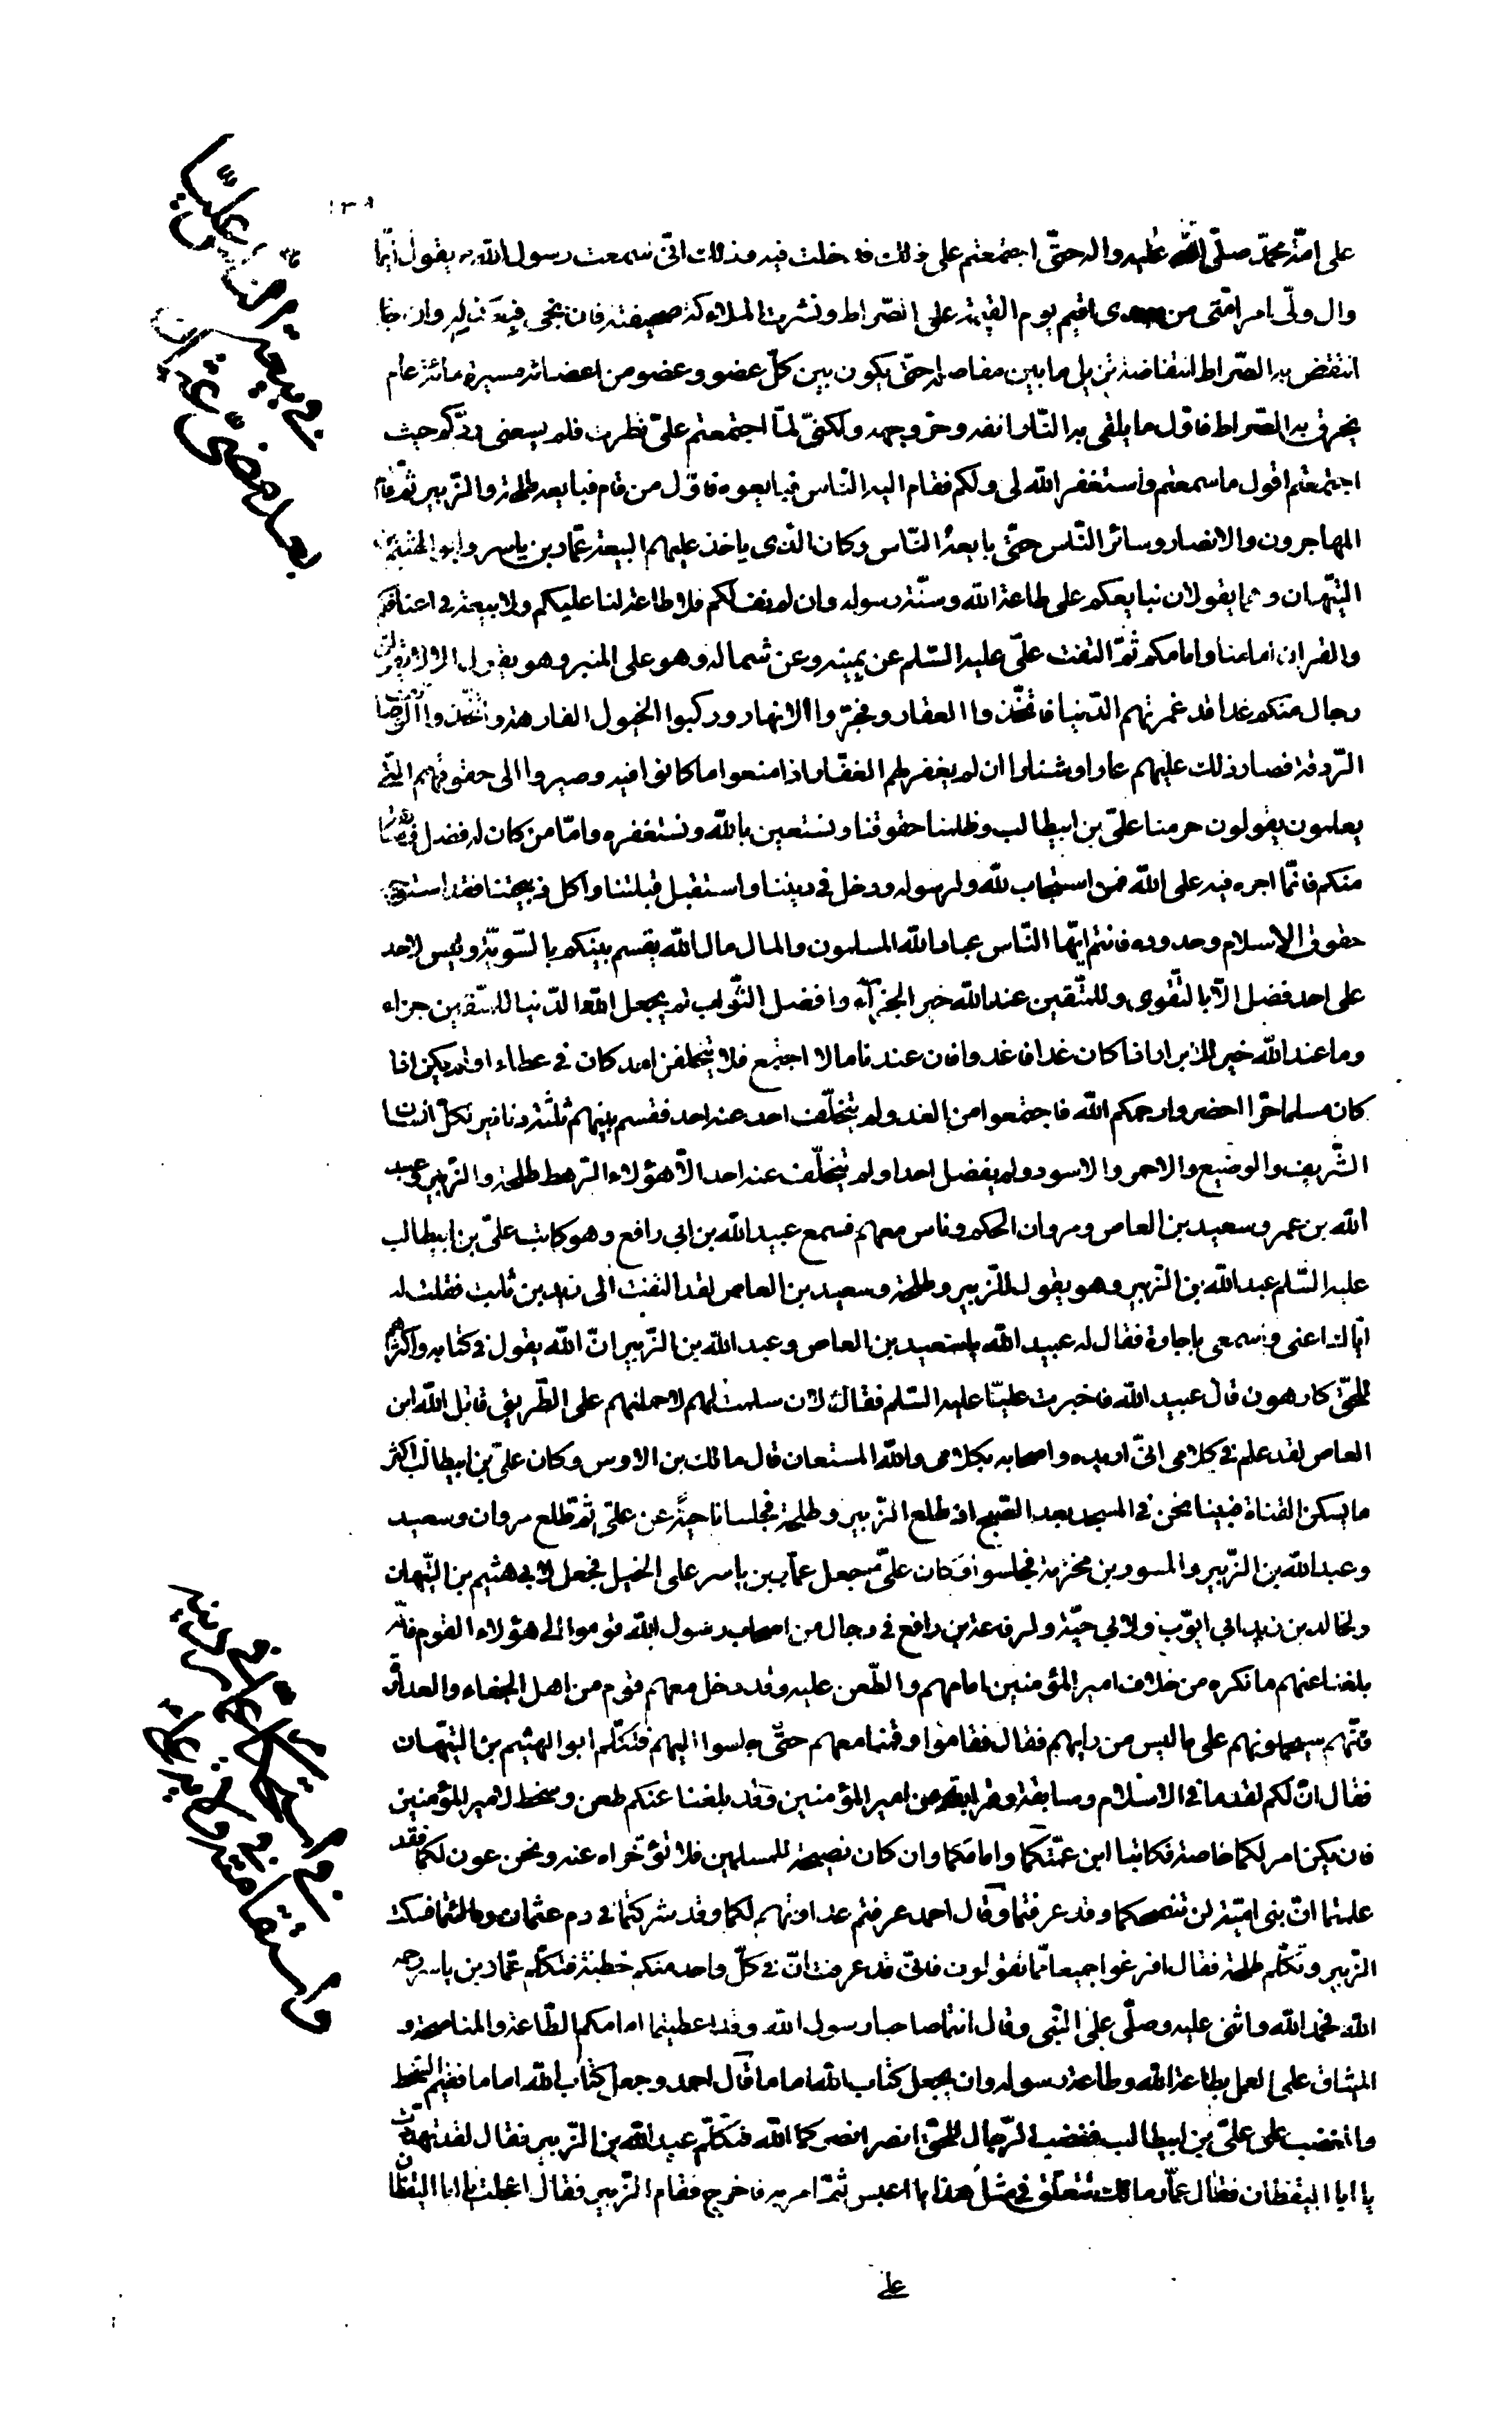 على امّة محمّد صلّى الله عليه واله حتّى اجتمعتم على ذلك فدخلت فيه وذلك انّى سمعت رسول الله يقول ايّما
وال ولّى امر امّتى من بعدى اقيم يوم القيمة على الصّراط ونشرت الملائكة صحيفته فان نجى وان
انتقض به الصّراط انتفاضة تزيل ما بين مفاصله حتّى يكون بين كلّ عضو وعضو من اعضائه مسيرة مائة عام
يخرق به الصّراط فاوّل ما يلقى به النّار انفه وحرّ وجهه ولكنّى لمّا اجتمعتم علىّ نظرت فلم يسعنى ردّكم حيث
اجتمعتم اقول ما سمعتم واستغفر الله لى ولكم فقام اليه النّاس فبايعوه فاوّل من قام فبايعه طلحة والزّبير ثمّ قام
المهاجرون والانصار وسائر النّاس حتّى بايعه النّاس وكان الذى ياخذ عليهم البيعة عمّار بن ياسر وابو الهيثم بن
التيّهان وهما يقولان نبايعكم على طاعة الله وسنّة رسوله وان لم نف لكم فلا طاعة لنا عليكم ولا بيعة فى اعناقكم
والقران امامنا وامامكم ثمّ التفت علىّ عليه السّلم عن يمينه وعن شماله وهو على المنبر وهو يقول الا لا يقولنّ
رجال منكم غدا قد غمرتهم الدّنيا فاتّخذوا العقار وفجّروا الانهار وركبوا الخيول الفارهة واتّخذوا
الرّوقة فصار ذلك عليهم عارا وشنارا ان لم يغفر لهم الغفّار اذا منعوا ما كانوا فيه وصيروا الى حقوقهم التى
يعلمون يقولون حرمنا علىّ بن ابيطالب وظلمنا حقوقنا ونستعين بالله ونستغفره وامّا من كان له فضل
منكم فانّما اجره فيه على الله فمن استجاب لله ولرسوله ودخل فى ديننا واستقبل قبلتنا واكل ذبيحتنا فقد استوجب
حقوق الاسلام وحدوده فانتم ايّها النّاس عباد الله المسلمون والمال مال الله يقسم بينكم بالسّويّة وليس لاحد
على احد فضل الّا بالتّقوى وللمتّقين عند الله خير الجزآء وافضل الثّواب لم يجعل الله الدّنيا للمتّقين جزاء
وما عند الله خير للابرار اذا كان غدا فاغدوا فان عندنا مالا اجتمع فلا يتخلّفن احد كان فى عطاء او لم يكن اذا
كان مسلما حرّا احضروا رحمكم الله فاجتمعوا من الغد ولم يتخلّف احد عنه احد فقسم بينهم ثلثة دنانير لكلّ انسان
الشّريف والوضيع والاحمر والاسود ولم يفضل احدا ولم يتخلّف عنه احد الّا هؤلاء الرّهط طلحة والزّبير وعبد
الله بن عمر وسعيد بن العاص ومروان الحكم وناس معهم فسمع عبيد الله بن ابى رافع وهو كاتب علىّ بن ابيطالب
عليه السّلم عبد الله بن الزّبير وهو يقول للزّبير وطلحة وسعيد بن العاص لقد التفت الى زيد بن ثابت فقلت له
ايّاك اعنى واسمعى ياجارة فقال له عبيد الله ياسعيد بن العاص وعبد الله بن الزّبير انّ الله يقول فى كتابه واكثرهم
للحقّ كارهون قال عبيد الله فاخبرت عليّا عليه السّلم فقال لان سلمت لهم لاحملنهم على الطّريق قاتل الله ابن
العاص لقد علم فى كلامى انّى اريده واصحابه بكلامى والله المستعان قال مالك بن الاوس وكان علىّ بن ابيطالب اكثر
ما يسكن القناة فبينا نحن فى المسجد بعد الصّبح اذ طلع الزّبير وطلحة فجلسا ناحية عن علىّ ثمّ طلع مروان وسعيد
وعبد الله بن الزّبير والمسور بن مخرمة فجلسوا وكان علىّ جعل عمّار بن ياسر على الخيل فجعل لابى هثيم بن التيّهان
ولخالد بن زيد ابى ايّوب ولابى حيّة ولرفاعة بن رافع فى رجال من اصحاب رسول الله قوموا الى هؤلاء القوم فانّه
بلغنا عنهم ما نكره من خلاف امير المؤمنين امامهم والطّعن عليه وقد دخل معهم قوم من اهل الجفاء والعداوة
فانّهم سيحملونهم على ما ليس من رايهم فقال فقاموا وقمنا معهم حتّى جلسوا اليهم فتكلّم ابو الهثيم بن التيّهان
فقال انّ لكم لقدما فى الاسلام وسابقة وقرابة من امير المؤمنين وقد بلغنا عنكم طعن وسخط لامير المؤمنين
فان يكن امر لكما خاصة فكاتبا ابن عمّتكما وامامكما وان كان نصيحة للمسلمين فلا تؤخّراه عنه ونحن عون لكما فقد
علمتما انّ بنى اميّة لن تنصحكما وقد عرفتما وقال احمد عرفتم عداوتهم لكما وقد شركتما فى دم عثمان ومالئتما فسكت
الزّبير وتكلّم طلحة فقال افرغوا جميعا ممّا تقولون فانّى قد عرفت انّ فى كلّ واحد منكم خطبة فتكلّم عمّار بن ياسر رحمه
الله فحمد الله واثنى عليه وصلّى على النّبى وقال انتما صاحبا رسول الله وقد اعطيتما امامكم الطّاعة والمناصحة و
الميثاق على العمل بطاعة الله وطاعة رسوله وان يجعل كتاب الله اماما قال احمد وجعل كتاب الله اماما ففيم السّخط
والغضب على علىّ بن ابيطالب فغضب الرّجال للحقّ انصرا نصركما الله فتكلّم عبد الله بن الزّبير فقال لقد تهذّرت
يا ابا اليقظان فقال عمّار مالك تتعلّق فى مثل هذا يا اعبس ثمّ امر به فاخرج فقام الزّبير فقال اعجلت يا ابا اليقظان
على